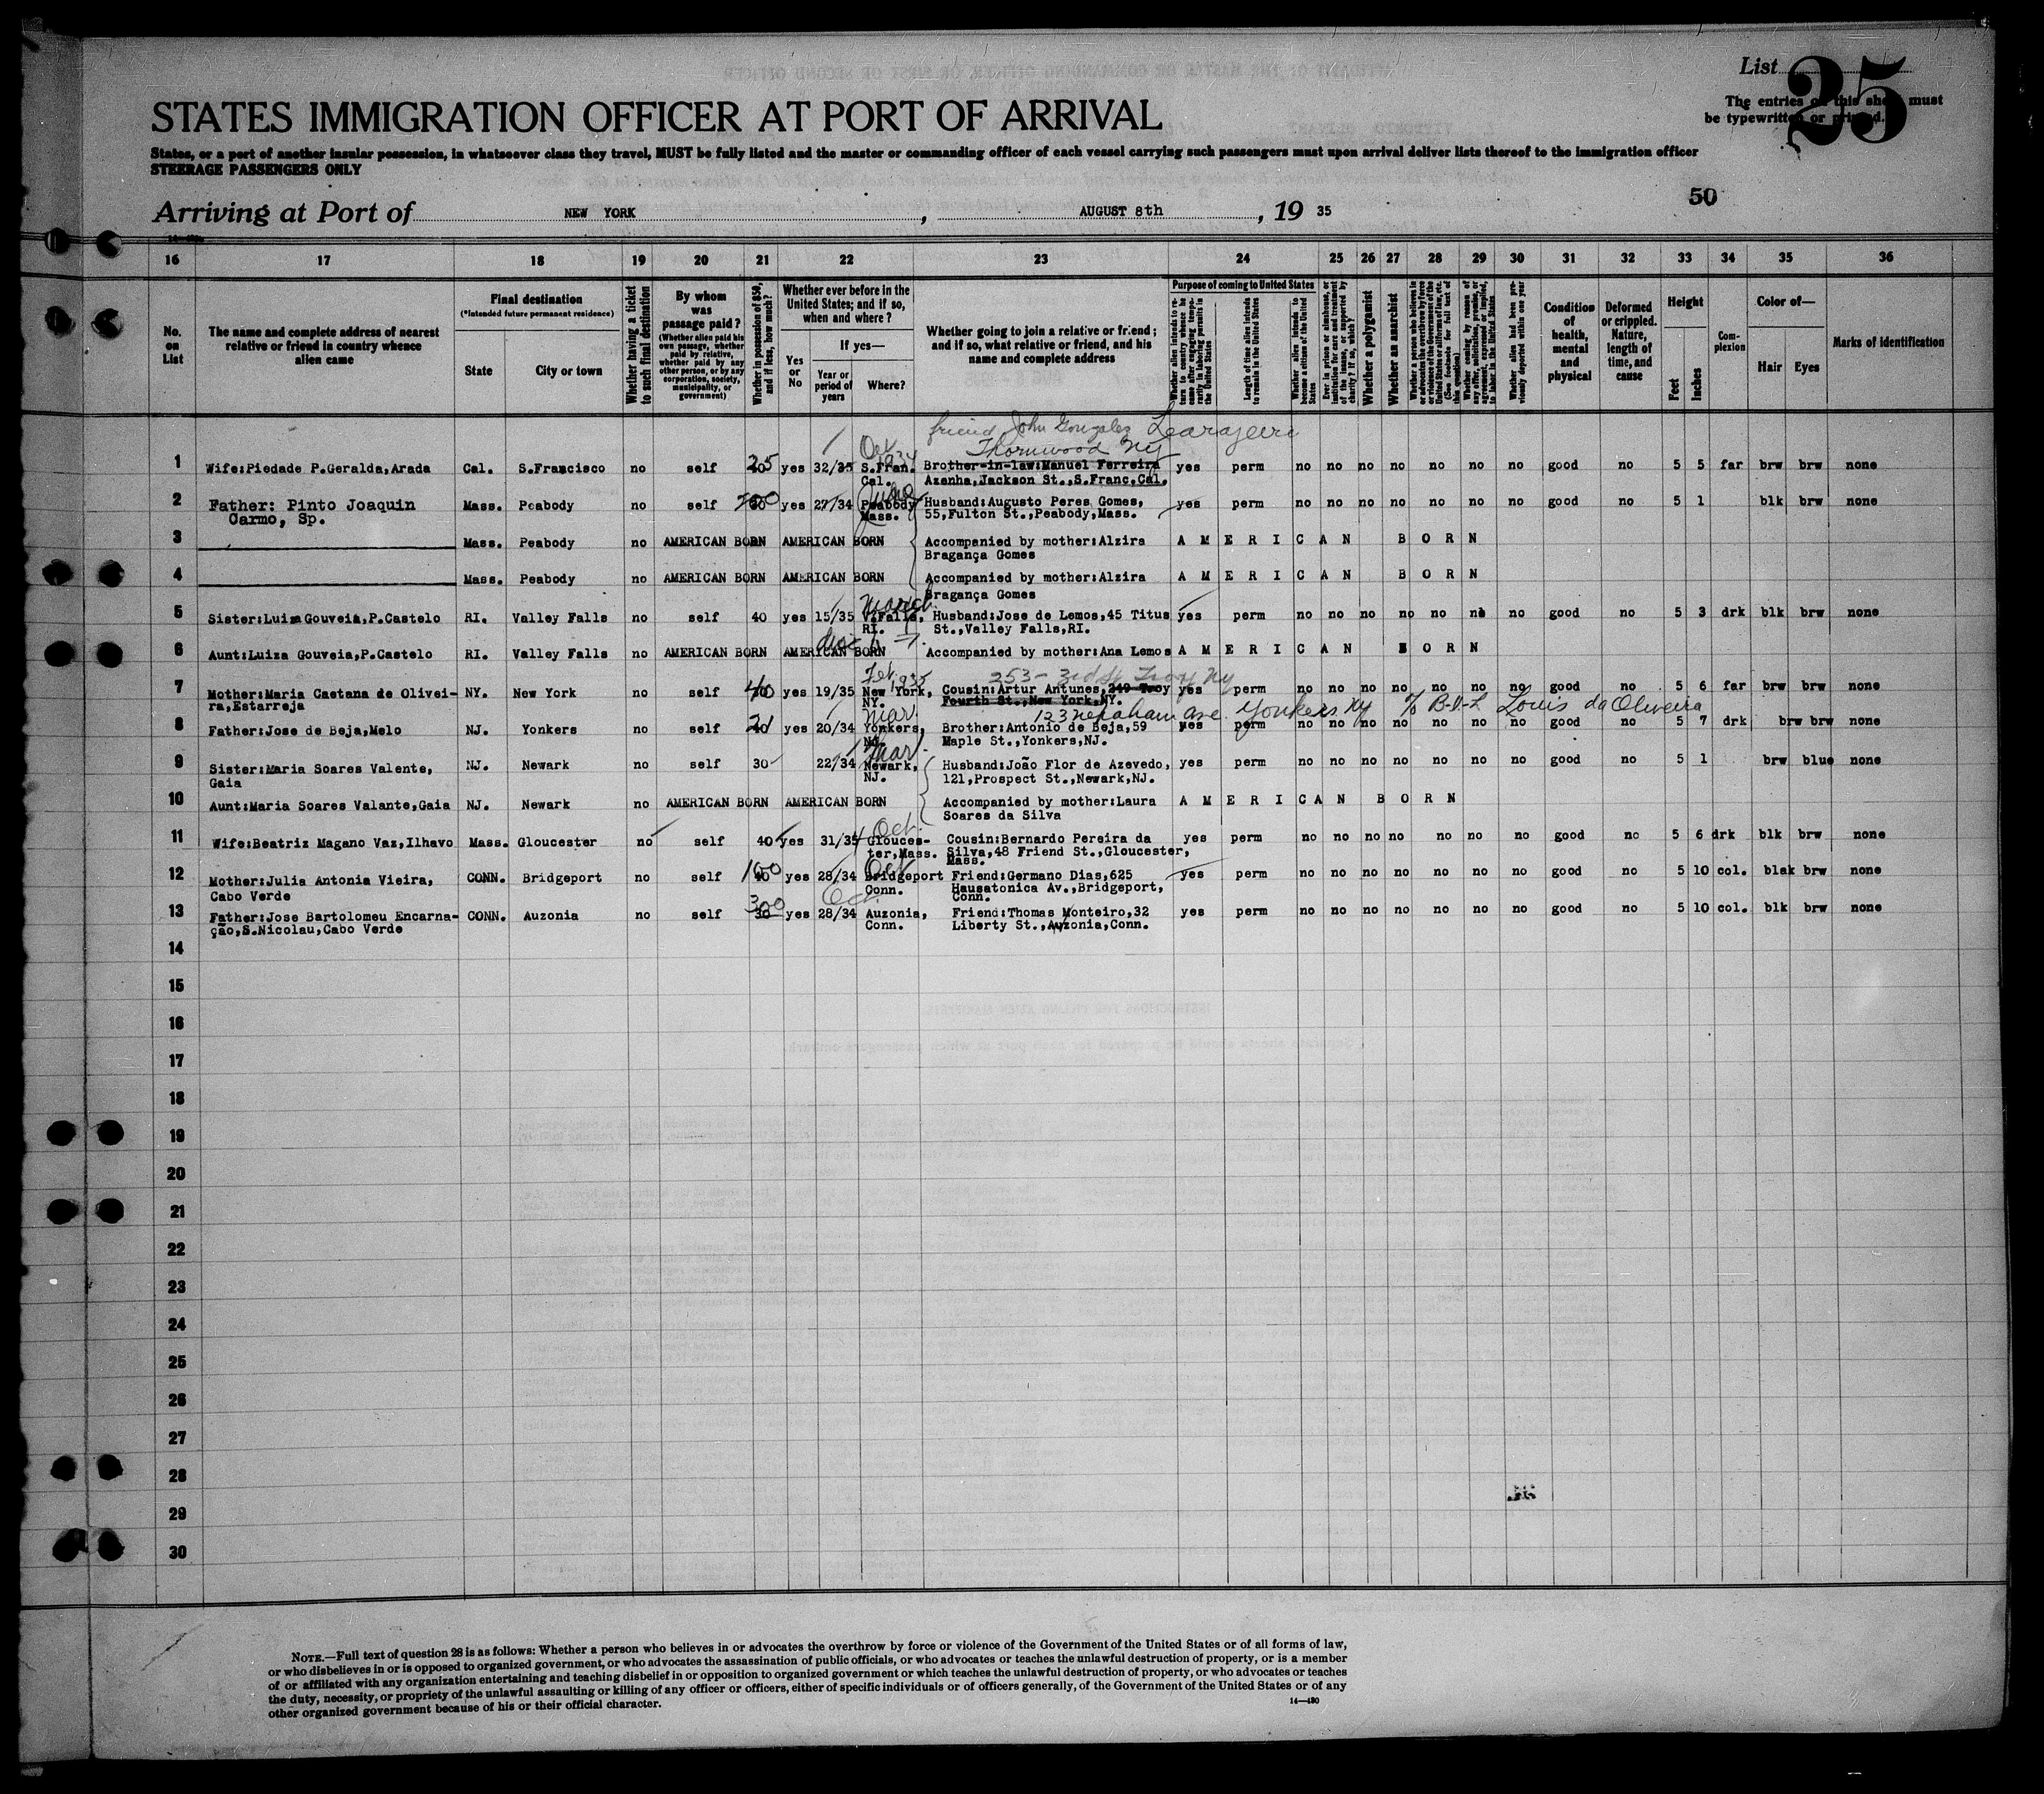 List 25
The entries on this sheet must
be typewritten or printed.
STATES IMMIGRATION OFFICER AT PORT OF ARRIVAL
States, or a port of another insular possession, in whatsoever class they travel, MUST be fully listed and the master or commanding officer of each vessel carrying such passengers must upon arrival deliver lists thereof to the immigration officer
STEERAGE PASSENGERS ONLY
50
Arriving at Port of NEW YORK, AUGUST 8th, 19 35
16 17 18 19 20 21 22 23 24 25 26 27 28 29 30 31 32 33 34 35 36
No. on List
The name and complete address of nearest relative or friend in country whence alien came
Final destination
(*Intended future permanent residence)
State
City or town
Whether having a ticket to such final destination
By whom was passage paid?
(Whether alien paid his own passage, whether paid by relative, whether paid by any other person, or by any corporation, society, municipality, or government)
Whether in possession of $50, and if less, how much?
Whether ever before in the United States; and if so, when and where?
Yes or No
If yes—
Year or period of years
Where?
Whether going to join a relative or friend; and if so, what relative or friend, and his name and complete address
Purpose of coming to United States
Whether alien intends to return to country whence he came after engaging temporarily in laboring pursuits in the United States
Length of time alien intends to remain in the United States
Whether alien intends to become a citizen of the United States
Ever in prison or almshouse, or institution for care and treatment of the insane, or supported by charity? If so, which?
Whether a polygamist
Whether an anarchist
Whether a person who believes in or advocates the overthrow by force or violence of the Government of the United States or all forms of law, etc. (See footnote for full text of this question)
Whether coming by reason of any offer, solicitation, promise, or agreement, expressed or implied, to labor in the United States
Whether alien had been previously deported within one year
Condition of health, mental and physical
Deformed or crippled. Nature, length of time, and cause
Height
Feet
Inches
Complexion
Color of—
Hair
Eyes
Marks of identification
friend John Gonzalez
Thornwood NY
Oct 1934
1 Wife:Piedade P.Geralda,Arada Cal. S.Francisco no self 25 yes 32/35 S.Fran. Brother-in-law:Manuel Ferreira yes perm no no no no no no no good no 5 5 far brw brw none
Cal. Azenha,Jackson St.,S.Franc,Cal.
2 Father: Pinto Joaquin Mass. Peabody no self yes 27/34 Peabody Husband:Augusto Peres Gomes, yes perm no no no no no no no good no 5 1 blk brw none
Carmo, Sp. Mass. 55,Fulton St.,Peabody,Mass.
3 Mass. Peabody no AMERICAN BORN AMERICAN BORN Accompanied by mother:Alzira A M E R I C A N B O R N
Bragança Gomes
4 Mass. Peabody no AMERICAN BORN AMERICAN BORN Accompanied by mother:Alzira A M E R I C A N B O R N
Bragança Gomes
March
5 Sister:Luiza Gouveia,P.Castelo RI. Valley Falls no self 40 yes 15/35 V.Falls, Husband:Jose de Lemos,45 Titus yes perm no no no no no no no good no 5 3 drk blk brw none
RI. St.,Valley Falls,RI.
6 Aunt:Luiza Gouveia,P.Castelo RI. Valley Falls no AMERICAN BORN AMERICAN BORN Accompanied by mother:Ana Lemos A M E R I C A N B O R N
Feb 1935 253 - 3rd St Troy NY
7 Mother:Maria Caetana de Olivei- NY. New York no self 40 yes 19/35 New York, Cousin:Artur Antunes,249 Troy yes perm no no no no no no no good no 5 6 far brw brw none
ra,Estarreja NY. Fourth St.,New York,NY.
Mar. 123 Nepaham ave Yonkers NY c/o B-i-L Louis da Oliveira
8 Father:Jose de Beja,Melo NJ. Yonkers no self yes 20/34 Yonkers, Brother:Antonio de Beja,59 yes perm no no no no no no no good no 5 7 drk brw brw none
NJ. Maple St.,Yonkers,NJ.
Mar.
9 Sister:Maria Soares Valente, NJ. Newark no self 30 22/34 Newark, Husband:João Flor de Azevedo, yes perm no no no no no no no good no 5 1 brw blue none
Gaia NJ. 121,Prospect St.,Newark,NJ.
10 Aunt:Maria Soares Valante,Gaia NJ. Newark no AMERICAN BORN AMERICAN BORN Accompanied by mother:Laura A M E R I C A N B O R N
Soares da Silva
Oct.
11 Wife:Beatriz Magano Vaz,Ilhavo Mass. Gloucester no self 40 yes 31/35 Glouces- Cousin:Bernardo Pereira da yes perm no no no no no no no good no 5 6 drk blk brw none
ter,Mass. Silva,48 Friend St.,Gloucester,
Mass.
Oct
12 Mother:Julia Antonia Vieira, CONN. Bridgeport no self 100 yes 28/34 Bridgeport Friend:Germano Dias,625 yes perm no no no no no no no good no 5 10 col. blak brw none
Cabo Verde Conn. Hausatonica Av.,Bridgeport,
Conn.
Oct.
13 Father:Jose Bartolomeu Encarna- CONN. Auzonia no self 300 yes 28/34 Auzonia, Friend:Thomas Monteiro,32 yes perm no no no no no no no good no 5 10 col. blk brw none
ção,S.Nicolau,Cabo Verde Conn. Liberty St.,Auzonia,Conn.
14
15
16
17
18
19
20
21
22
23
24
25
26
27
28
29
30
NOTE.—Full text of question 28 is as follows: Whether a person who believes in or advocates the overthrow by force or violence of the Government of the United States or of all forms of law,
or who disbelieves in or is opposed to organized government, or who advocates the assassination of public officials, or who advocates or teaches the unlawful destruction of property, or is a member
of or affiliated with any organization entertaining and teaching disbelief in or opposition to organized government or which teaches the unlawful destruction of property, or who advocates or teaches
the duty, necessity, or propriety of the unlawful assaulting or killing of any officer or officers, either of specific individuals or of officers generally, of the Government of the United States or of any
other organized government because of his or their official character.
14—430